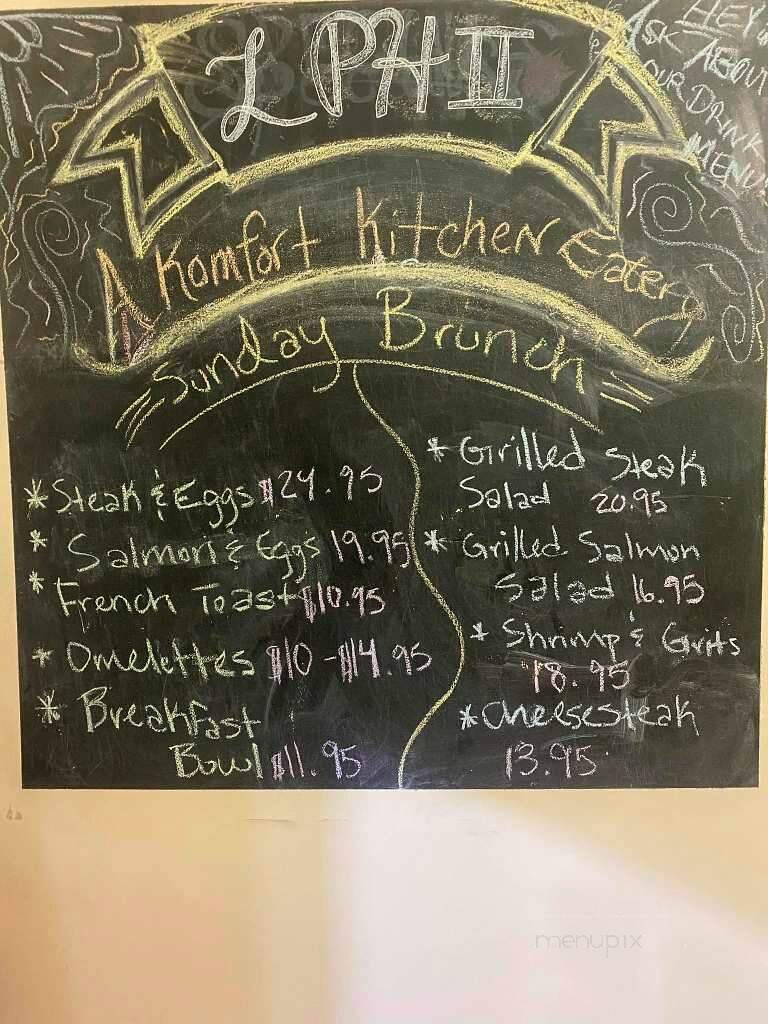 LPH II
HEY,
ASK ABOUT
OUR DRINK
MENU
A Komfort Kitchen Eatery
Sunday Brunch
*Steak & Eggs $24.95
* Salmon & Eggs 19.95
* French Toast $10.95
* Omelettes $10-$14.95
* Breakfast
Bowl $11.95
* Grilled Steak
Salad 20.95
* Grilled Salmon
Salad 16.95
* Shrimp & Grits
18.95
*Cheesesteak
13.95
menupix